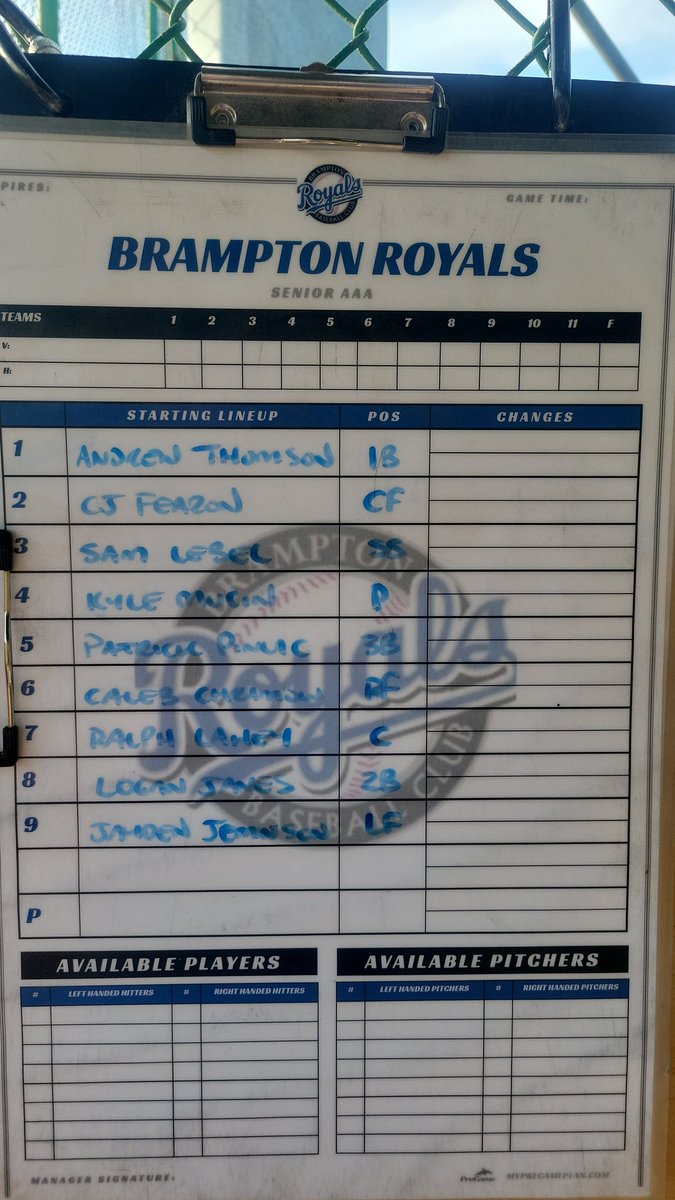 BRAMPTON
Royals
BASEBALL CLUB
PIRES:
GAME TIME:
BRAMPTON ROYALS
SENIOR AAA
TEAMS 1 2 3 4 5 6 7 8 9 10 11 F
V:
H:
STARTING LINEUP POS CHANGES
1 ANDREW THOMSON 1B
2 CJ FEARON CF
3 SAM LEBEL SS
4 KYLE P
5 PATRICK 3B
6 CALEB RF
7 RALPH LAHEY C
8 LOGAN JAMES 2B
9 JAYDEN JOHNSON LF
P
BRAMPTON
Royals
BASEBALL CLUB
AVAILABLE PLAYERS AVAILABLE PITCHERS
# LEFT HANDED HITTERS # RIGHT HANDED HITTERS # LEFT HANDED PITCHERS # RIGHT HANDED PITCHERS
MANAGER SIGNATURE: PreGame MYPREGAMEPLAN.COM